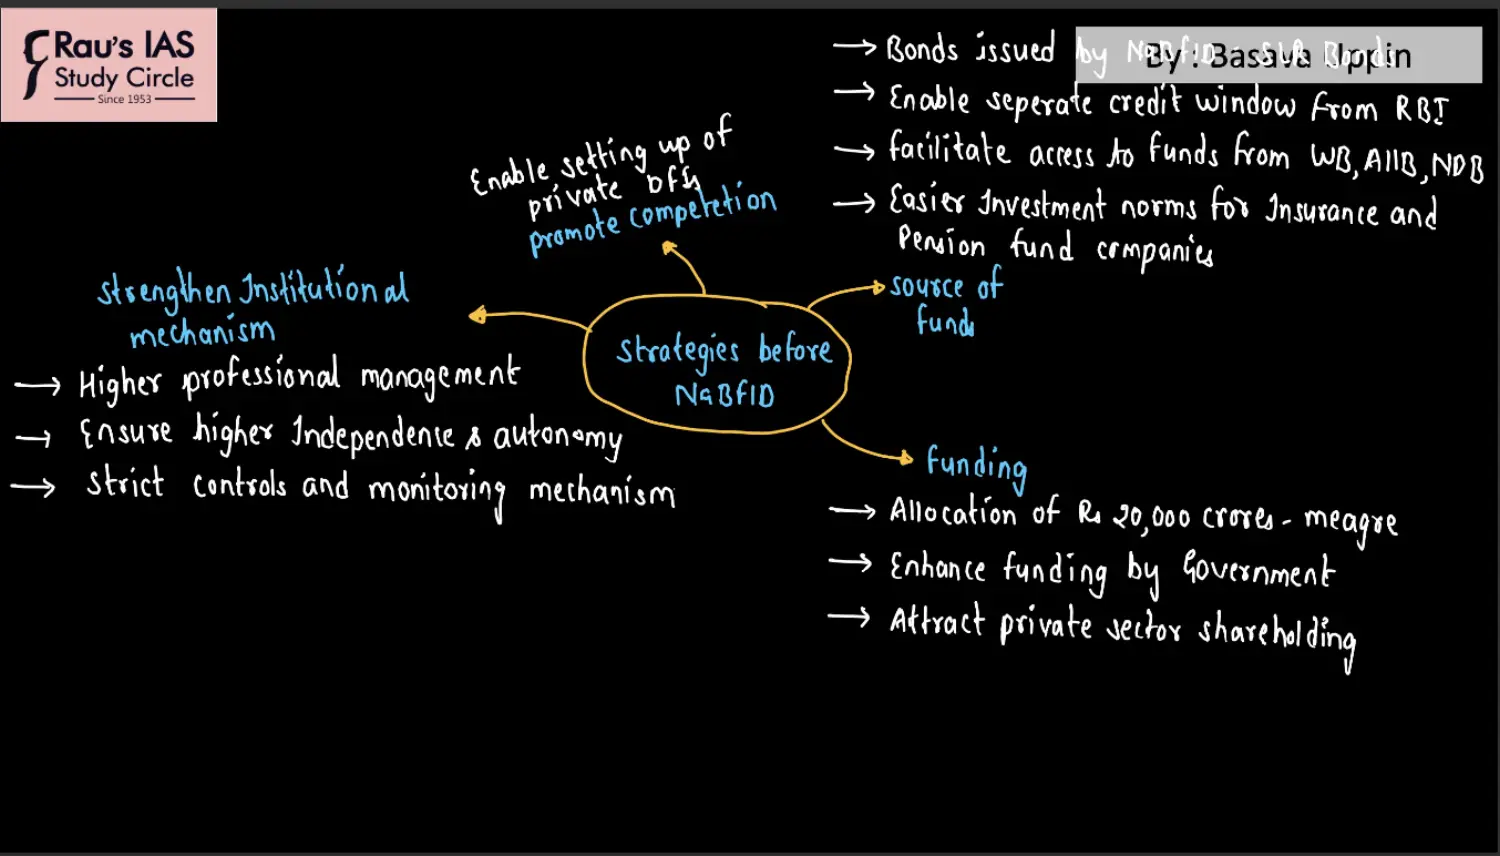 Rau's IAS
Study Circle
Since 1953
By : Basava Uppin
→ Bonds issued by NaBFID - SLR Bonds
→ Enable seperate credit window from RBI
→ facilitate access to funds from WB, AIIB, NDB
→ Easier Investment norms for Insurance and
Pension fund companies
source of
funds
Enable setting up of
private DFIs
promote competetion
Strengthen Institutional
mechanism
→ Higher professional management
→ Ensure higher Independence & autonomy
→ Strict controls and monitoring mechanism
Strategies before
NaBFID
funding
→ Allocation of Rs 20,000 crores - meagre
→ Enhance funding by Government
→ Attract private sector shareholding